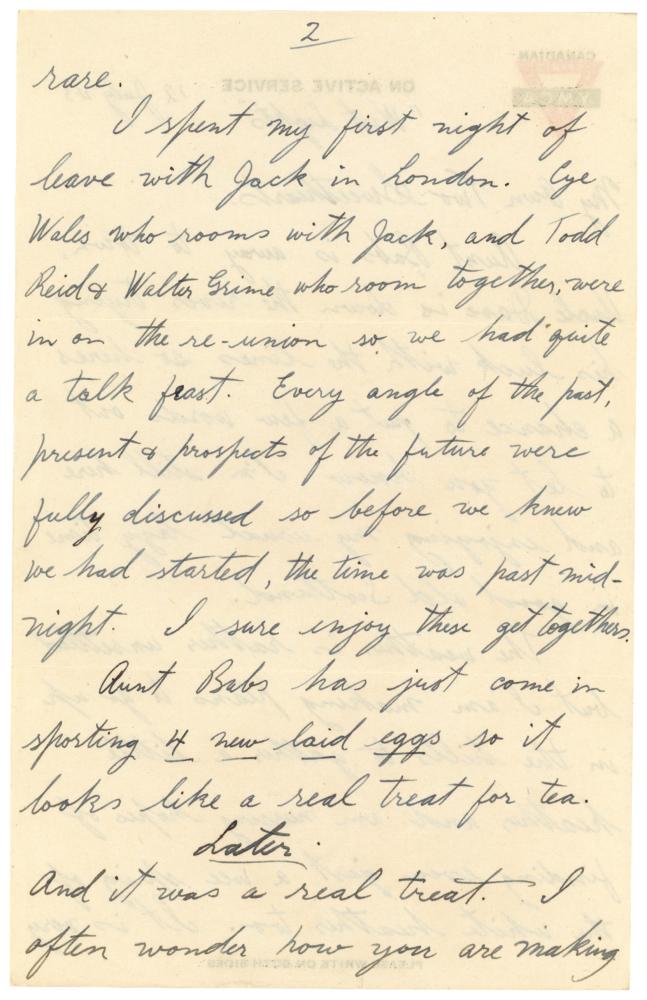 2
rare.
I spent my first night of
leave with Jack in London. Cye
Wales who rooms with Jack, and Todd
Reid & Walter Grime who room together, were
in on the re-union so we had quite
a talk feast. Every angle of the past,
present & prospects of the future were
fully discussed so before we knew
we had started, the time was past mid-
night. I sure enjoy these get togethers.
Aunt Babs has just come in
sporting 4 new laid eggs so it
looks like a real treat for tea.
Later.
And it was a real treat. I
often wonder how you are making
CANADIAN
Y.M.C.A.
ON ACTIVE SERVICE
PLEASE WRITE ON BOTH SIDES